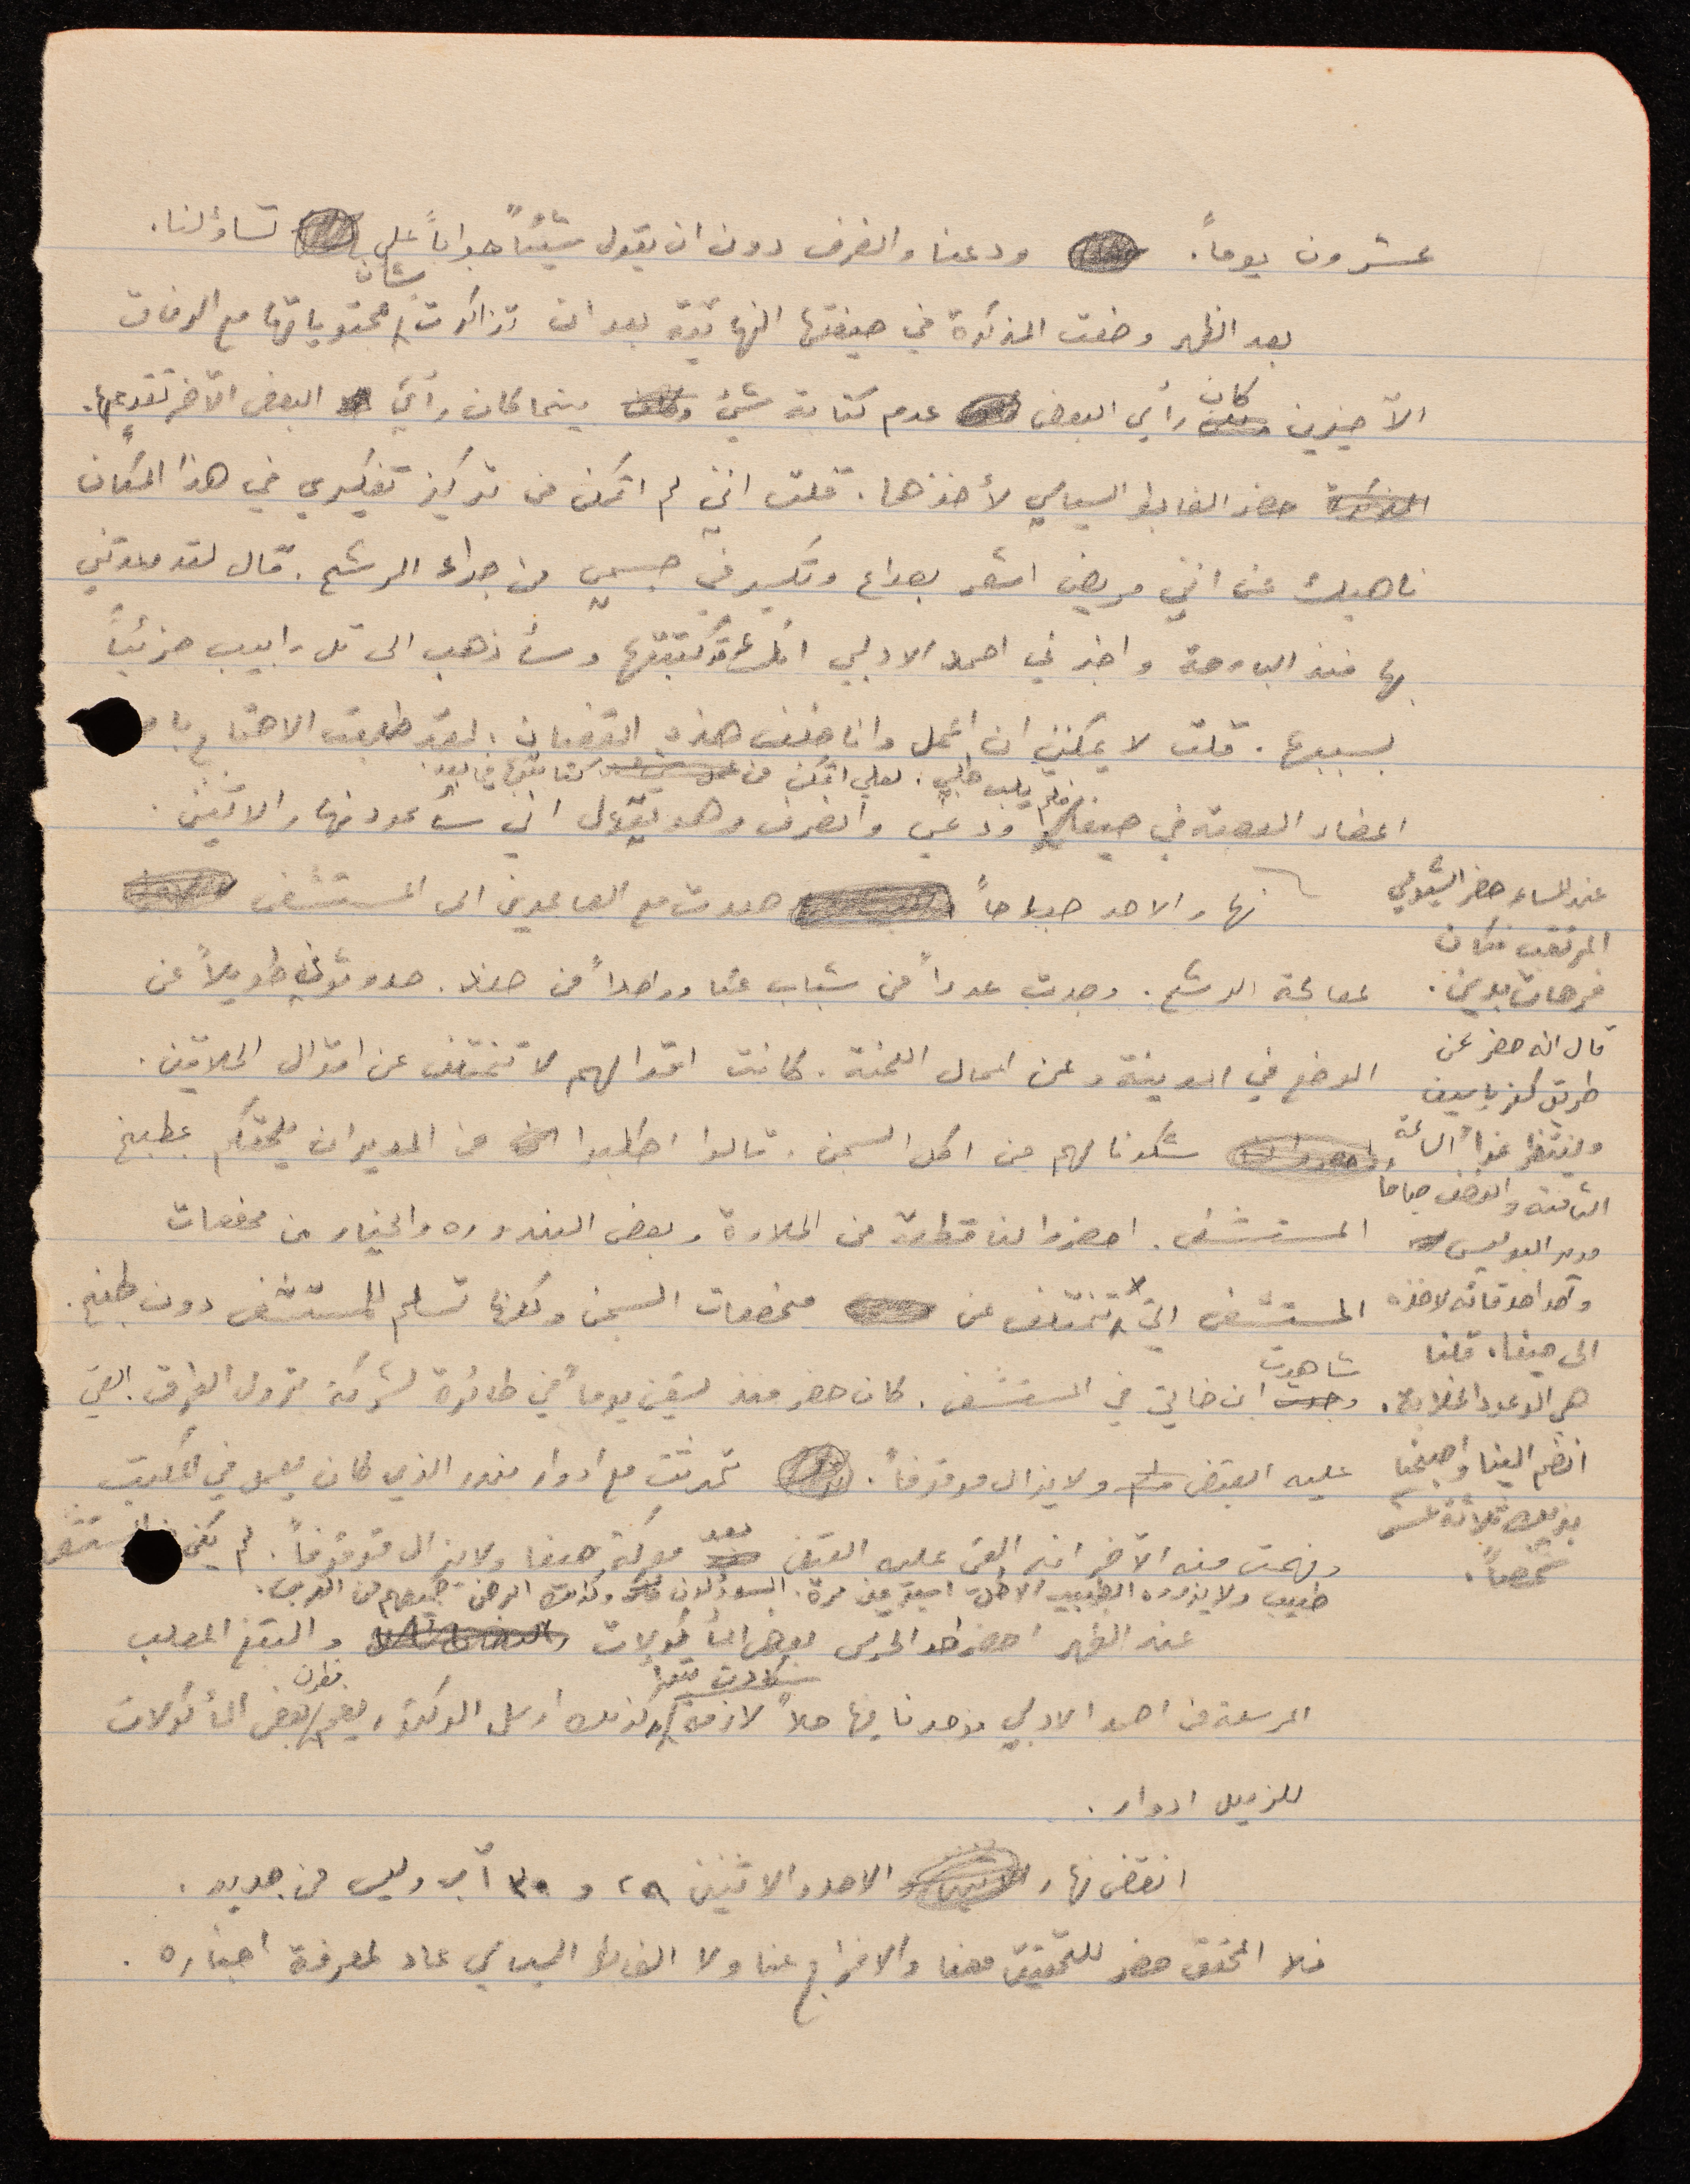 عشرون يوماً. ودعنا وانصرف دون ان يقول شيئاً جواباً على تساؤلنا.
بعد الظهر وضعت المذكرة في صيغتها النهائية بعد ان تذاكرت بشأن محتوياتها مع الرفاق
الآخرين كان رأي البعض عدم كتابة شيء بينما كان رأي البعض الآخر تقديمها.
حضر الضابط السياسي لأخذها. قلت اني لم اتمكن من تركيز تفكيري في هذا المكان
ناهيك عن انني مريض اشعر بصداع وتكسير في جسمي من جراء الرشح. قال لقد وعدتني
بها منذ البارحة واخبرني احمد الادلبي انك كتبتها وسأذهب الى تل ابيب خصيصاً
بسببها. قلت لا يمكنني ان اعمل وانا خلف هذه القضبان. لقد طلبت الاجتماع
اعضاء العصبة في حيفا فلم يلب طلبي. لعلي اتمكن من كتابتها فيما بعد. ودعني وانصرف وهو يقول اني سأعود نهار الاثنين.
نهار الاحد صباحاً صعدت مع القاعدين الى المستشفى
لمعالجة الرشح. وجدت عدداً من شباب عكا وواحداً من صفد. حدثوني طويلاً عن
الوضع في المدينة وعن اعمال اللجنة. كانت اقوالهم لا تختلف عن اقوال الحلاقين.
شكونا لهم من اكل السجن. قالوا اطلبوا من المدير ان يلحقكم بمطبخ
المستشفى. احضروا لنا قطعة من الحلاوة وبعض البندوره والخيار من مخصصات
المستشفى التي لا تختلف عن مخصصات السجن وكونها تسلم للمستشفى دون طبخ.
شاهدت ابن خالتي في المستشفى. كان حضر منذ ستين يوماً في طائرة لشركة بترول العراق. القي
عليه القبض ولا يزال موقوفاً. تحدثت مع ادوار الذي كان يعمل في الكويت
وفهمت منه الآخر انه القي عليه القبض بعد معركة حيفا ولا يزال موقوفاً. لم يكن في المستشفى
طبيب ولا يزوره الطبيب الا كل اسبوعين مرة. المسؤولون وكذلك المرضى جميعهم من العرب.
عند الظهر احضر احد الحرس بعض المأكولات والتبغ المعلب
المرسلة من احمد الادلبي فوجدنا فيها حلاً لازمة وكذلك ارسل الدكتور بعض المأكولات
للزميل ادوار.
انقضى نهار الاحد والاثنين ٢٩ و ٣٠ آب وليس من جديد.
فلا المحقق حضر للتحقيق معنا والافراج عنا ولا الضابط السياسي عاد لمعرفة اخباره.
عند المساء حضر الشيوعي
المرتقب فكان
فرحات بدين.
قال انه حضر عن
طريق كفر ياسيف
وينتظر غداً الساعة
الثامنة والنصف صباحاً
مدير البوليس
واحد اصدقائه لاخذه
الى حيفا. قلنا
هي الوعود الخلابة.
انضم الينا واصبحنا
بذلك ثلاثة عشر
شخصاً.